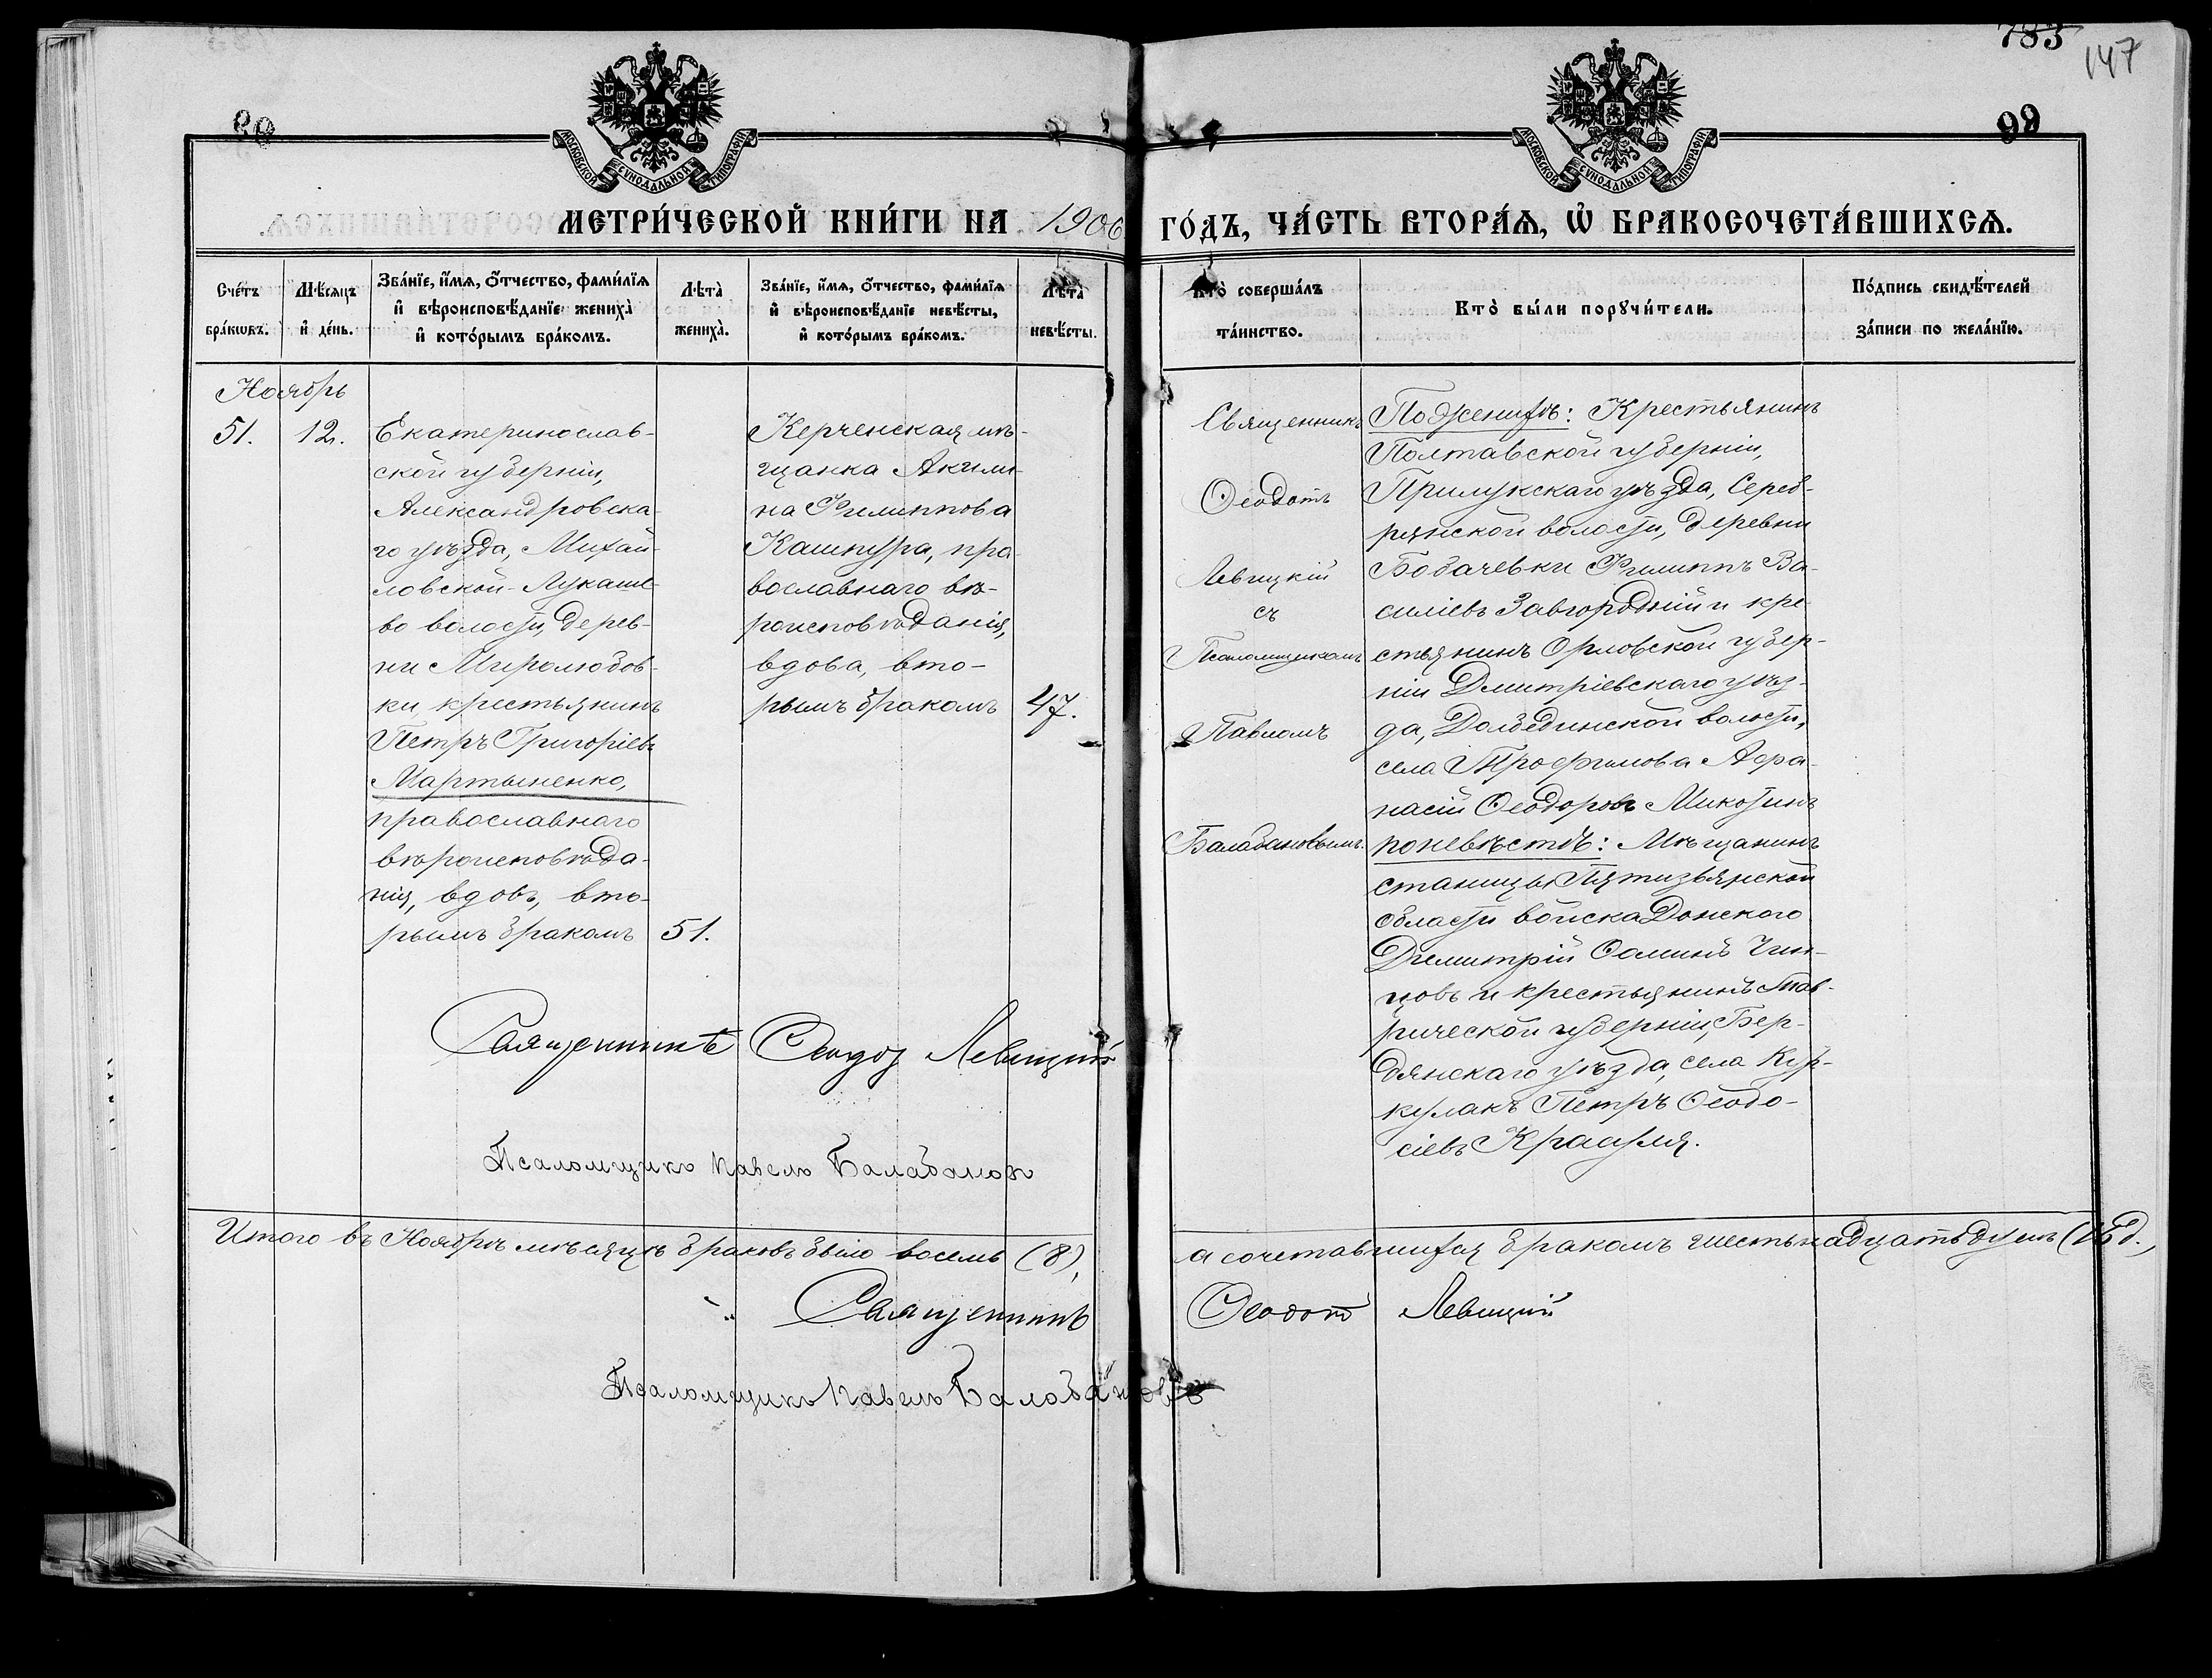 783
147
99
МОСКОВСКОЙ СѴНОДАЛЬНОЙ ТИПОГРАФІИ
МОСКОВСКОЙ СѴНОДАЛЬНОЙ ТИПОГРАФІИ
МЕТРИ́ЧЕСКОЙ КНИ́ГИ НА 1906 ГО́ДЪ, ЧА́СТЬ ВТОРА́Ѧ, Ѡ҆ БРАКОСОЧЕТА́ВШИХСѦ.
Сче́тъ
бра́кѡвъ.
Мѣ́сѧцъ
и҆ де́нь.
Зва́нїе, и҆́мѧ, ѻ҆́тчество, фами́лїѧ
и҆ вѣроисповѣ́данїе жениха̀
и҆ кото́рымъ бра́комъ.
Лѣта̀
жениха̀.
Зва́нїе, и҆́мѧ, ѻ҆́тчество, фами́лїѧ
и҆ вѣроисповѣ́данїе невѣ́сты,
и҆ кото́рымъ бра́комъ.
Лѣта̀
невѣ́сты.
Кто̀ соверша́лъ
та́инство.
Кто̀ бы́ли порꙋчи́тели.
По́дпись свидѣ́телей
за́писи по жела́нїю.
Ноябрь
51.
12.
Екатеринослав-
ской губерніи,
Александровска-
го уѣзда, Михай-
ловской-Лукаше-
во волости, дерев-
ни Миролюбов-
ки крестьянинъ
Петръ Григоріевъ
Мартыненко,
православнаго
вѣроисповѣда-
нія, вдовъ, вто-
рымъ бракомъ
51.
Керченская мѣ-
щанка Акили-
на Филиппова
Кашпура, пра-
вославнаго вѣ-
роисповѣданія,
вдова, вто-
рымъ бракомъ
47.
Священникъ
Ѳеодотъ
Левицкій
съ
Псаломщикомъ
Павломъ
Балабановымъ.
По женихѣ: Крестьянинъ
Полтавской губерніи,
Прилукскаго уѣзда, Сереб-
рянской волости, деревни
Богачевки Филиппъ Ва-
силіевъ Завгородній и кре-
стьянинъ Орловской губер-
ніи Дмитріевскаго уѣз-
да, Долбединской волости,
села Трофимова Афа-
насій Ѳеодоровъ Микотинъ
по невѣстѣ: Мѣщанинъ
станицы Пятизбянской
области войска Донского
Димитрій Ѳоминъ Чин-
цовъ и крестьянинъ Тав-
рической губерніи, Бер-
дянскаго уѣзда, села Кур-
кулакъ Петръ Ѳеодо-
сіевъ Красуля.
Священникъ Ѳеодот Левицкій
Псаломщикъ Павелъ Балабанов
Итого въ Ноябрѣ мѣсяцѣ браковъ было восемь (8), а сочетавшихся бракомъ шестьнадцать душъ (16 д.,
Священникъ Ѳеодот Левицкій
Псаломщикъ Павелъ Балабановъ